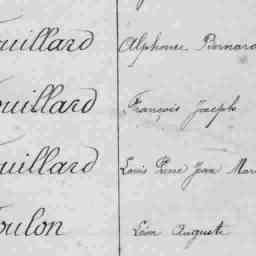 ouillard Alphonse Bernard
ouillard François Joseph
ouillard Louis Pierre Jean Mar
oulon Léon Auguste